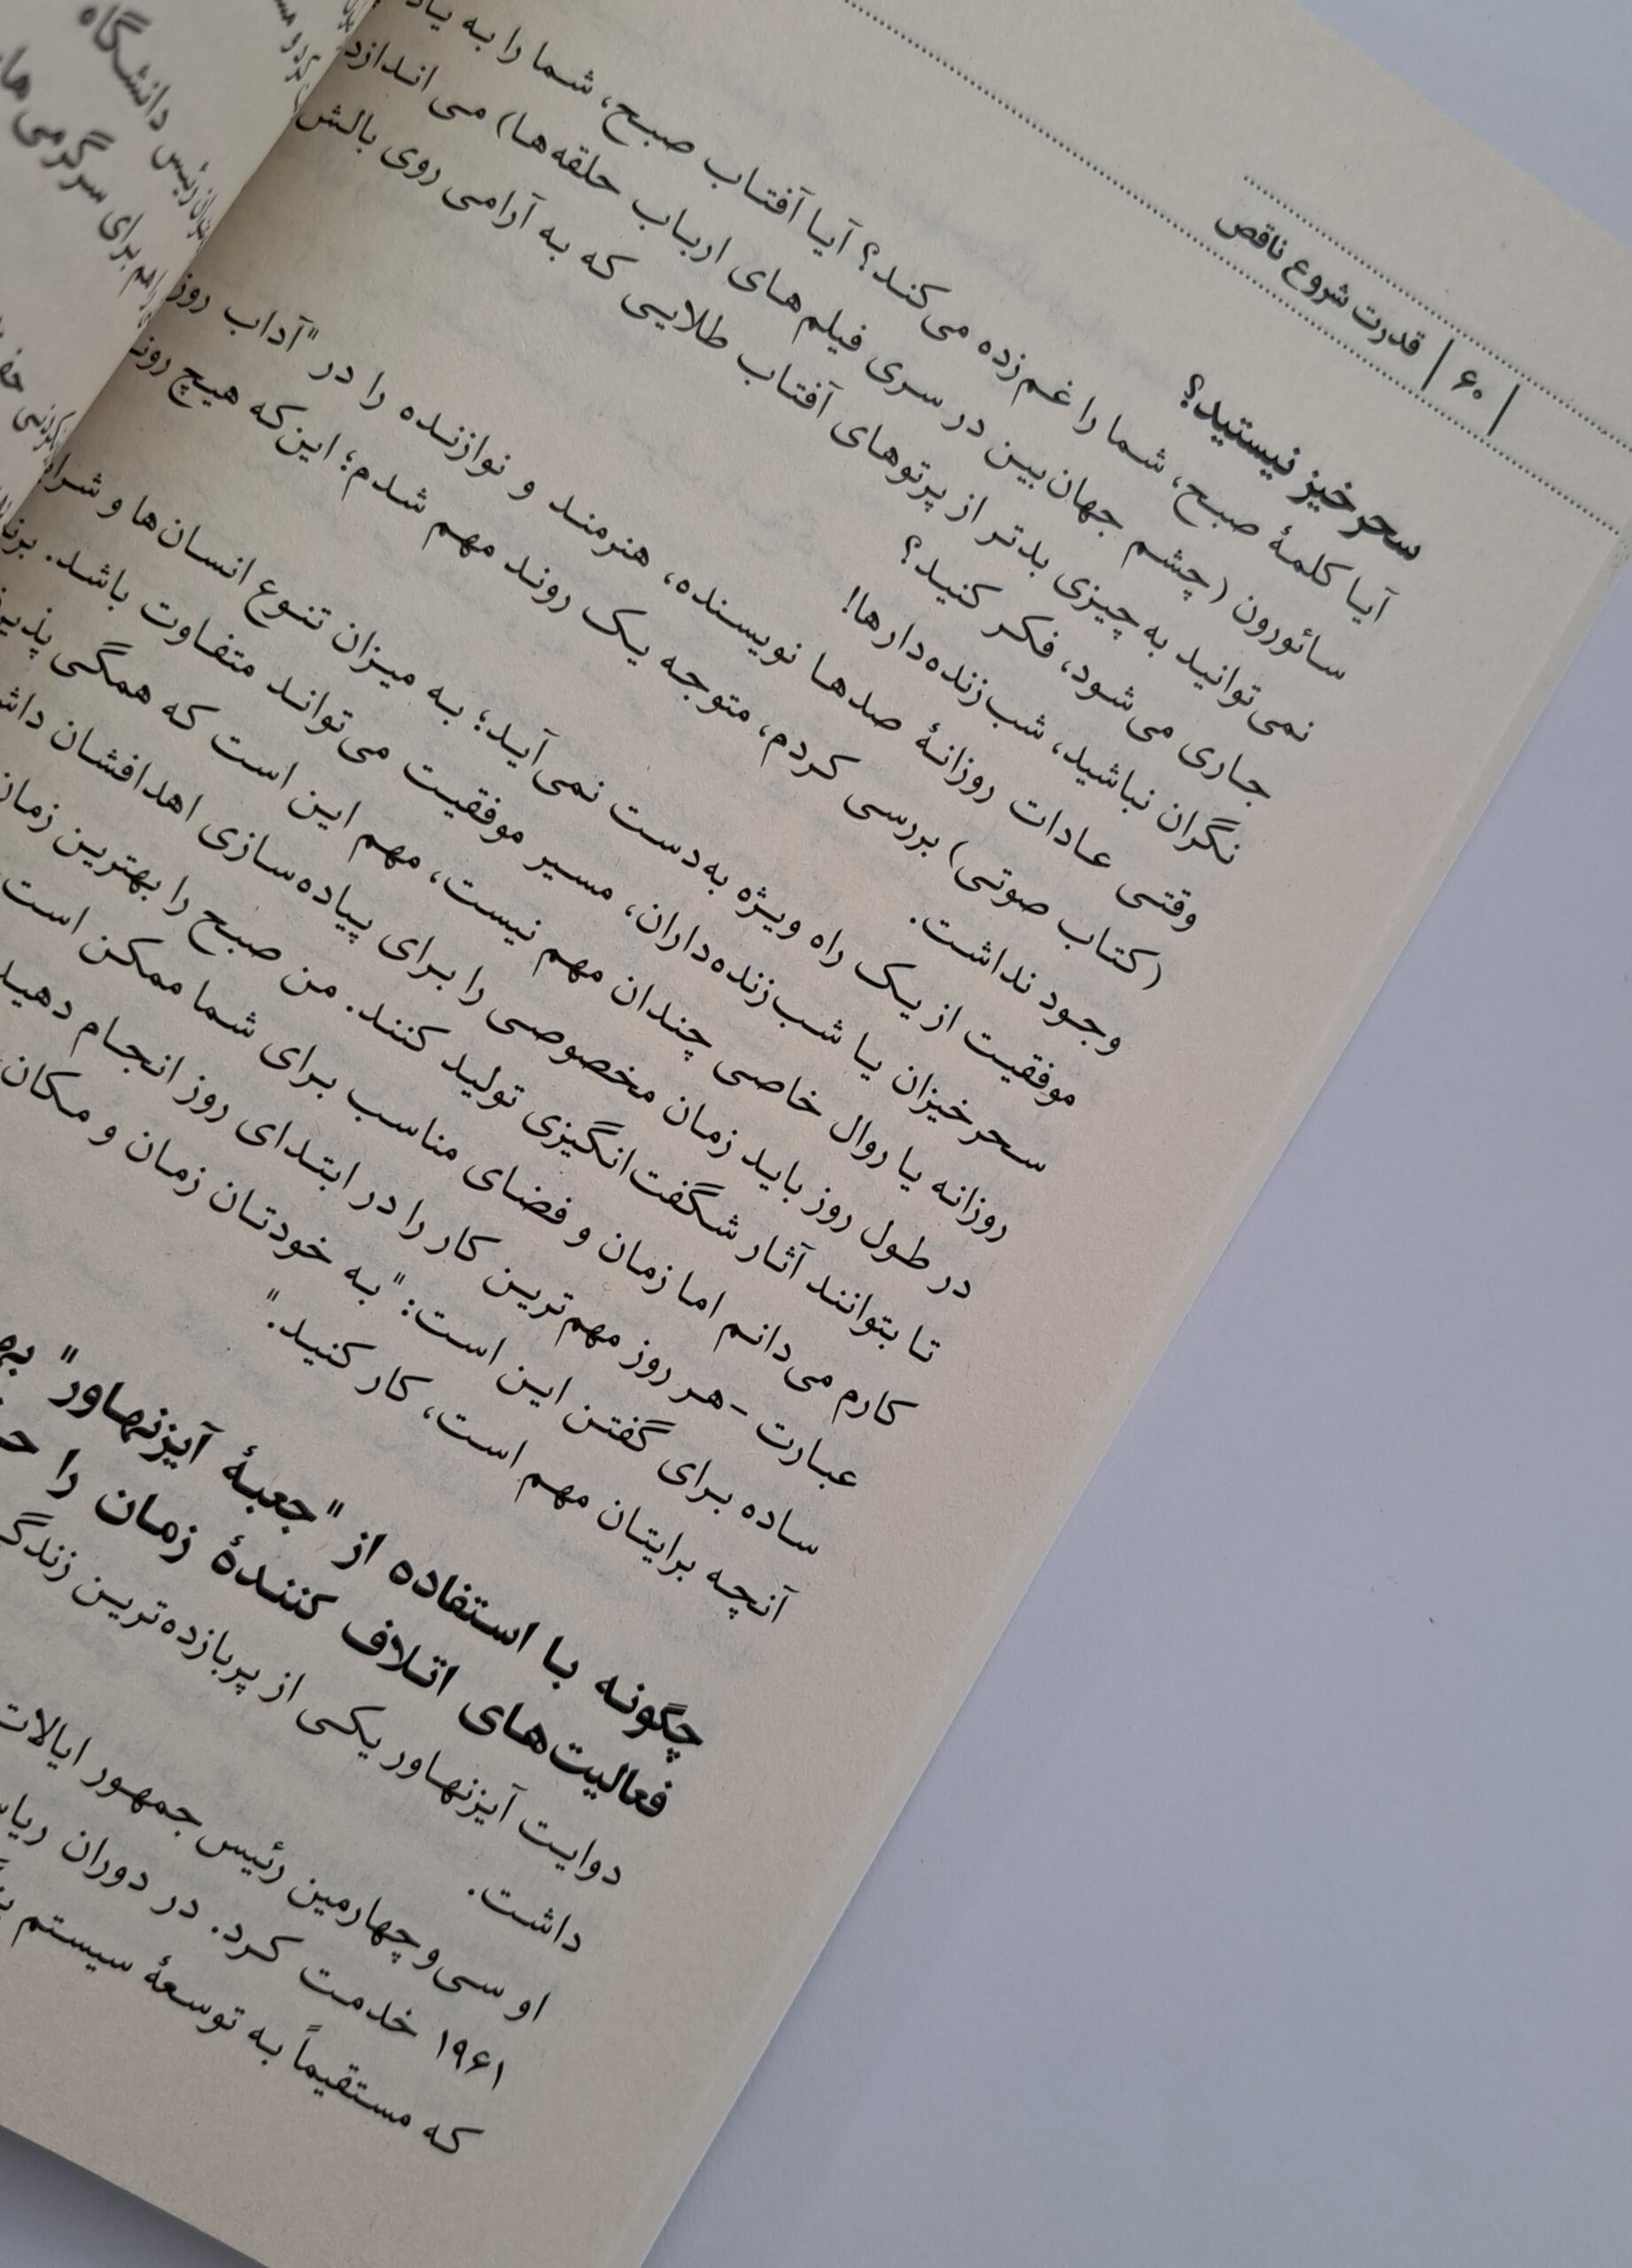 | ۶۰ | قدرت شروع ناقص
سحرخیز نیستید؟
آیا کلمهٔ صبح، شما را غم‌زده می‌کند؟ آیا آفتاب صبح، شما را به
سائورون (چشم جهان‌بین در سری فیلم‌های ارباب حلقه‌ها) می‌اندازد
نمی‌توانید به چیزی بدتر از پرتوهای آفتاب طلایی که به آرامی روی بالش
جاری می‌شود، فکر کنید؟
نگران نباشید، شب‌زنده‌دارها!
وقتی عادات روزانهٔ صدها نویسنده، هنرمند و نوازنده را در "آداب روز
(کتاب صوتی) بررسی کردم، متوجه یک روند مهم شدم؛ این‌که هیچ
وجود نداشت.
موفقیت از یک راه ویژه به‌دست نمی‌آید؛ به میزان تنوع انسان‌ها و
سحرخیزان یا شب‌زنده‌داران، مسیر موفقیت می‌تواند متفاوت باشد.
روزانه یا روال خاصی چندان مهم نیست، مهم این است که همگی
در طول روز باید زمان مخصوصی را برای پیاده‌سازی اهدافشان
تا بتوانند آثار شگفت‌انگیزی تولید کنند. من صبح را بهترین
کارم می‌دانم اما زمان و فضای مناسب برای شما ممکن است
عبارت -هر روز مهم‌ترین کار را در ابتدای روز انجام دهید
ساده برای گفتن این است: "به خودتان زمان و مکان
آنچه برایتان مهم است، کار کنید."
چگونه با استفاده از "جعبهٔ آیزنهاور"
فعالیت‌های اتلاف کنندهٔ زمان را
دوایت آیزنهاور یکی از پربازده‌ترین
داشت.
او سی‌وچهارمین رئیس جمهور ایالات
۱۹۶۱ خدمت کرد. در دوران
که مستقیماً به توسعهٔ سیستم
دانشگاه
رئیس
برای سرگرمی